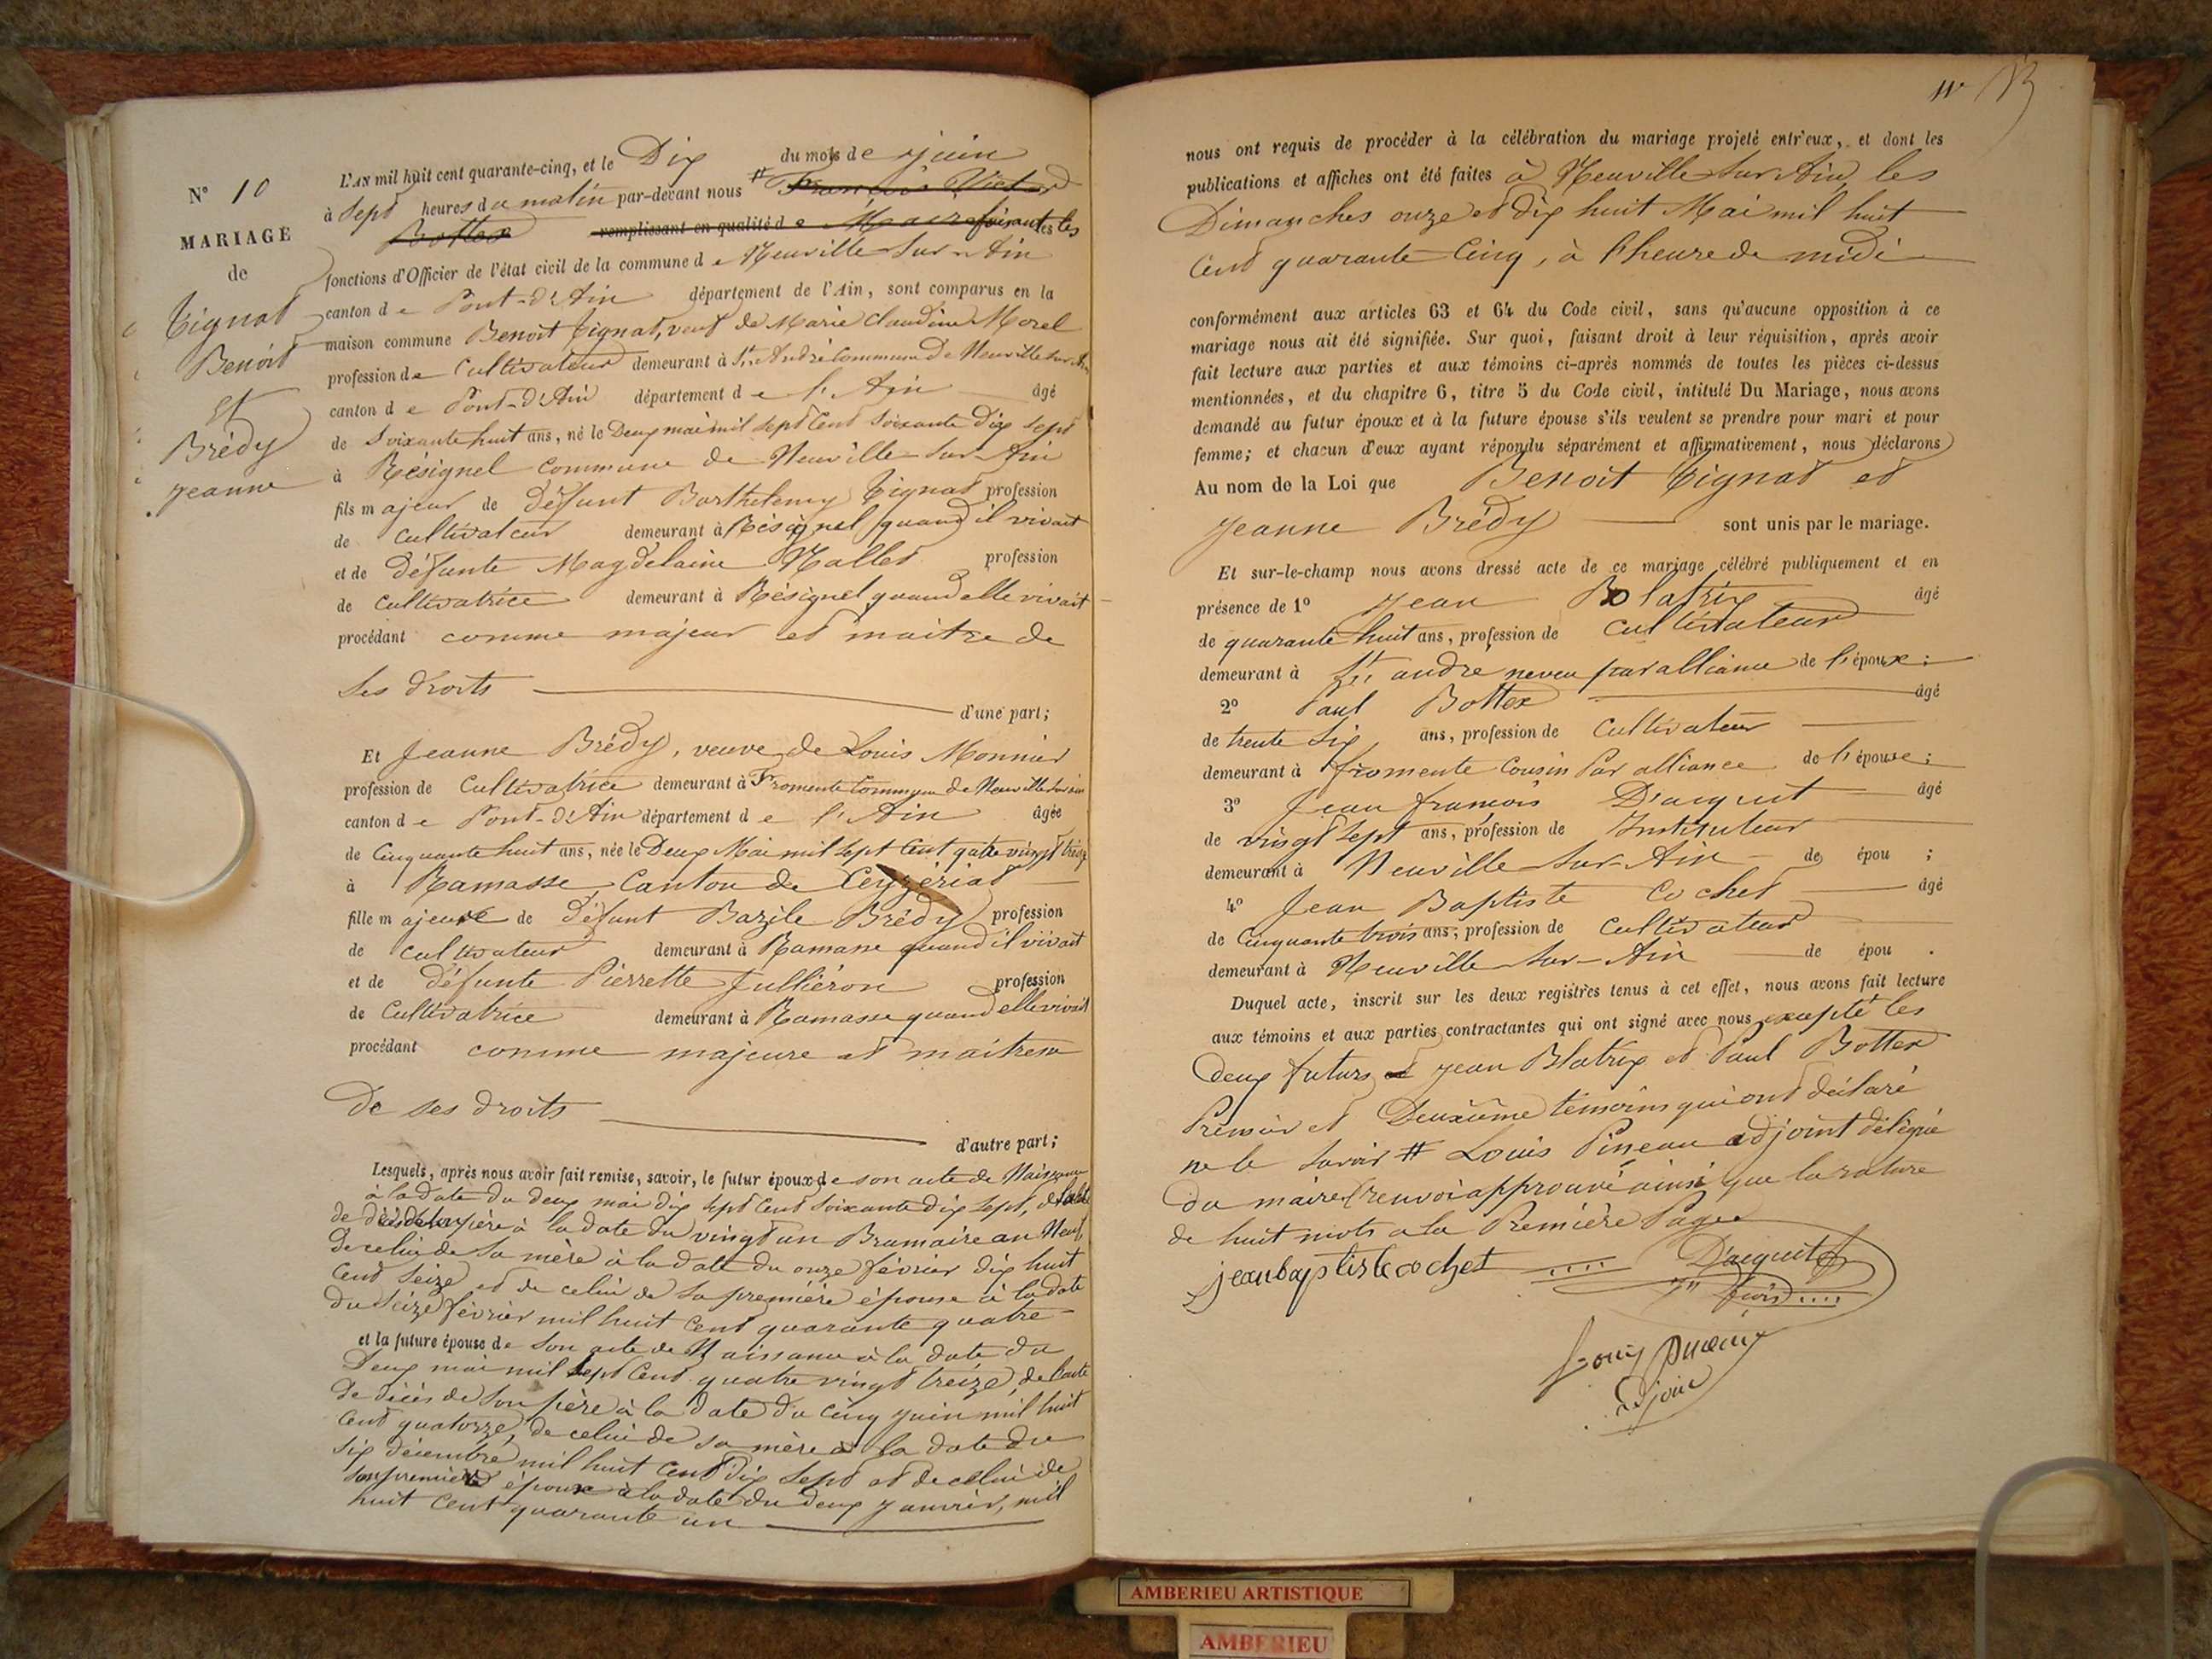 N° 10
MARIAGE
de
Tignat
Benoit
Et
Brédy
Jeanne
L'AN mil huit cent quarante-cinq, et le Dix du mois de juin
à Sept heures du matin par-devant nous # François Victor
Bottex remplissant en qualité de Maire faisant les
fonctions d'Officier de l'état civil de la commune de Neuville sur Ain
canton de Pont-d'Ain département de l'Ain, sont comparus en la
maison commune Benoit Tignat, veuf de Marie Claudine Morel
profession de Cultivateur demeurant à St André Commune de Neuville sur Ain
canton de Pont-d'Ain département de l'Ain âgé
de Soixante huit ans, né le Deux mai mil sept cent soixante dix sept
à Résignel commune de Neuville-sur-Ain
fils majeur de défunt Barthelemy Tignat profession
de cultivateur demeurant à Résignel quand il vivait
et de défunte Magdelaine Mallet profession
de cultivatrice demeurant à Résignel quand elle vivait
procédant comme majeur et maitre de
ses droits
d'une part;
Et Jeanne Brédy, veuve de Louis Monnier
profession de Cultivatrice demeurant à Fromente Commune de Neuville sur ain
canton de Pont-d'Ain département de l'Ain âgée
de Cinquante huit ans, née le Deux Mai mil sept cent quatre vingt treize
à Ramasse, Canton de Ceyzériat
fille majeure de défunt Bazile Brédy profession
de cultivateur demeurant à Ramasse quand il vivait
et de défunte Pierrette Julliéron profession
de Cultivatrice demeurant à Ramasse quand elle vivait
procédant comme majeure et maitresse
De ses droits
d'autre part;
Lesquels, après nous avoir fait remise, savoir, le futur époux de son acte de Naissance
à la date du deux mai dix sept cent soixante dix sept, de l'acte
de décès de son père à la date du vingt un Brumaire an Neuf,
de celui de sa mère à la date du onze février dix huit
cent seize et de celui de sa première épouse à la date
du seize février mil huit cent quarante quatre
et la future épouse de son acte de Naissance à la date du
Deux mai mil sept cent quatre vingt treize, de l'acte
de décès de son père à la date du cinq juin mil huit
cent quatorze, de celui de sa mère à la date du
six décembre mil huit cent dix sept et de celui de
son premier époux à la date du deux janvier, mil
huit cent quarante un
nous ont requis de procéder à la célébration du mariage projeté entr'eux, et dont les
publications et affiches ont été faites à Neuville sur Ain, les
Dimanches onze et dix huit Mai mil huit
cent quarante cinq, à l'heure de midi
conformément aux articles 63 et 64 du Code civil, sans qu'aucune opposition à ce
mariage nous ait été signifiée. Sur quoi, faisant droit à leur réquisition, après avoir
fait lecture aux parties et aux témoins ci-après nommés de toutes les pièces ci-dessus
mentionnées, et du chapitre 6, titre 5 du Code civil, intitulé Du Mariage, nous avons
demandé au futur époux et à la future épouse s'ils veulent se prendre pour mari et pour
femme; et chacun d'eux ayant répondu séparément et affirmativement, nous déclarons
Au nom de la Loi que Benoit Tignat et
Jeanne Brédy sont unis par le mariage.
Et sur-le-champ nous avons dressé acte de ce mariage célébré publiquement et en
présence de 1° Jean Blatrix âgé
de quarante huit ans, profession de cultivateur
demeurant à St andre neveu par alliance de l'époux;
2° Paul Bottex âgé
de trente six ans, profession de Cultivateur
demeurant à fromente Cousin Par alliance de l'épouse;
3° Jean françois D'acquit âgé
de vingt sept ans, profession de Instituteur
demeurant à Neuville sur-Ain de épou ;
4° Jean Baptiste Cochet âgé
de Cinquante trois ans, profession de cultivateur
demeurant à Neuville-sur-Ain de épou .
Duquel acte, inscrit sur les deux registres tenus à cet effet, nous avons fait lecture
aux témoins et aux parties contractantes qui ont signé avec nous excepté les
deux futurs et Jean Blatrix et Paul Bottex
Premier et Deuxième témoins qui ont déclaré
ne le savoir # Louis Pineau adjoint délégué
du maire (renvoi approuvé ainsi que la rature
de huit mots à la Première Page
jeanbaptiste cochet D'acquit
Jn fçois
Louis Pineau
adjoint
AMBERIEU ARTISTIQUE
AMBERIEU